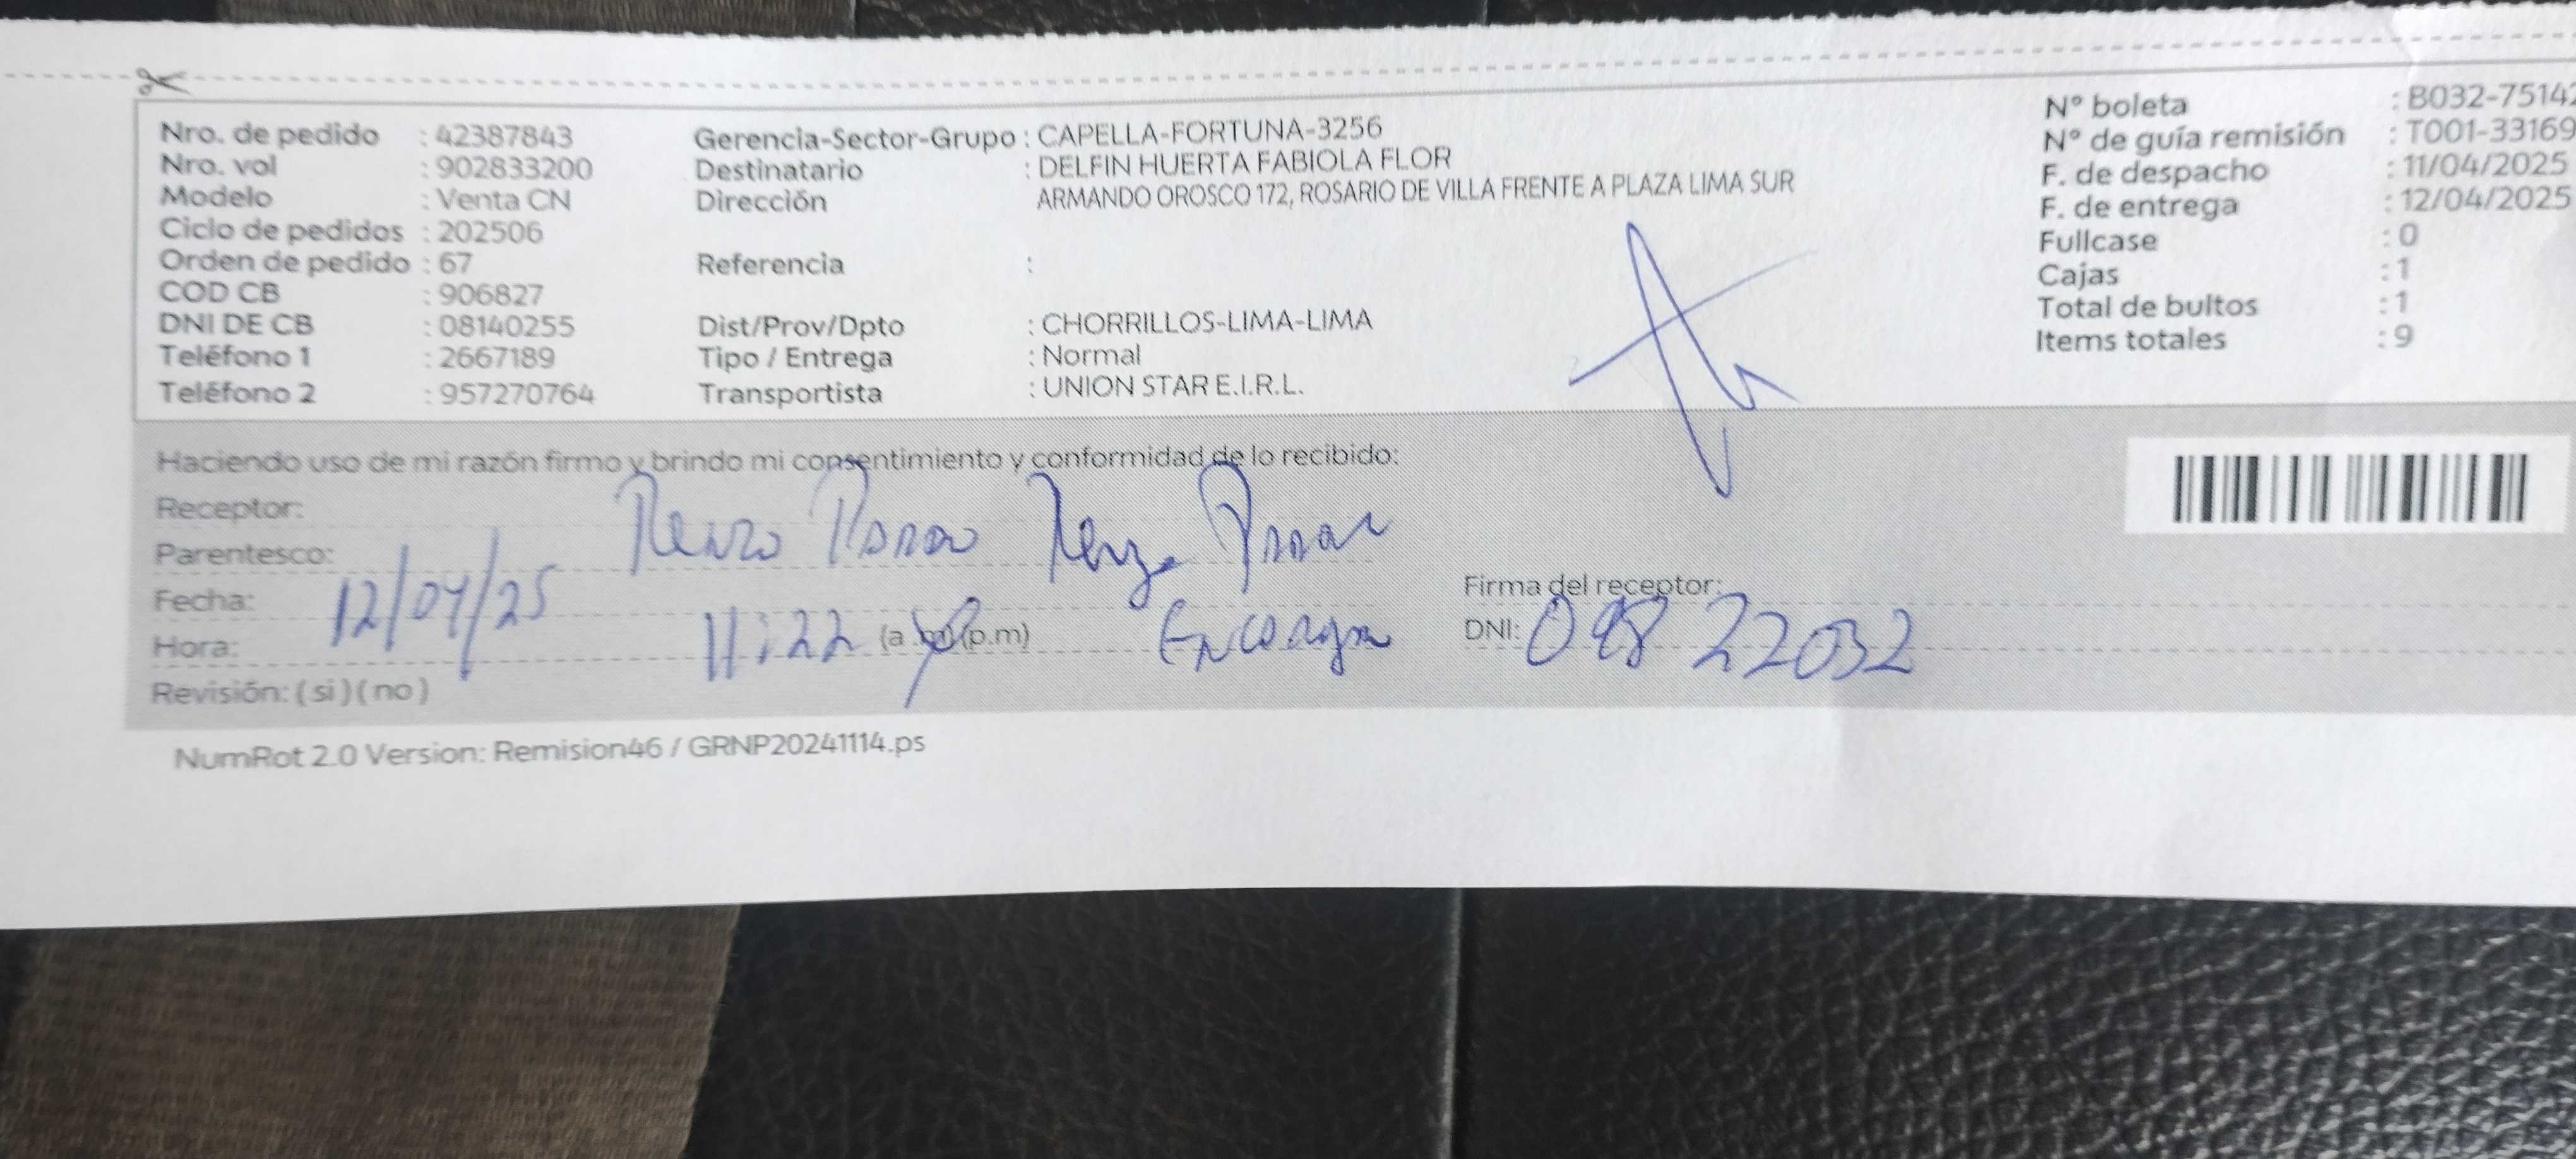 Nro. de pedido : 42387843
Nro. vol : 902833200
Modelo : Venta CN
Ciclo de pedidos : 202506
Orden de pedido : 67
COD CB : 906827
DNI DE CB : 08140255
Teléfono 1 : 2667189
Teléfono 2 : 957270764
Gerencia-Sector-Grupo : CAPELLA-FORTUNA-3256
Destinatario : DELFIN HUERTA FABIOLA FLOR
Dirección ARMANDO OROSCO 172, ROSARIO DE VILLA FRENTE A PLAZA LIMA SUR
Referencia :
Dist/Prov/Dpto : CHORRILLOS-LIMA-LIMA
Tipo / Entrega : Normal
Transportista : UNION STAR E.I.R.L.
N° boleta : B032-7514
N° de guía remisión : T001-33169
F. de despacho : 11/04/2025
F. de entrega : 12/04/2025
Fullcase : 0
Cajas : 1
Total de bultos : 1
Items totales : 9
Haciendo uso de mi razón firmo y brindo mi consentimiento y conformidad de lo recibido:
Receptor: Renzo
Parentesco:
Fecha: 12/04/25
Firma del receptor:
Hora: 11:22 (a.m) (p.m)
DNI:
Revisión: ( si ) ( no )
NumRot 2.0 Version: Remision46 / GRNP20241114.ps